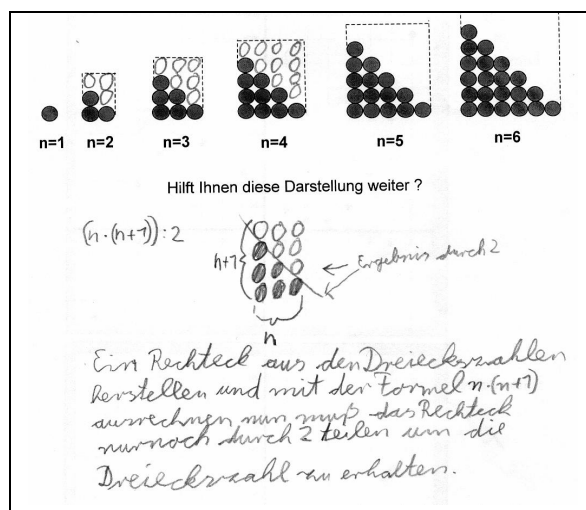 n=1 n=2 n=3 n=4 n=5 n=6
Hilft Ihnen diese Darstellung weiter ?
(n·(n+1)):2
n+1
Ergebnis durch 2
n
Ein Rechteck aus den Dreieckszahlen
herstellen und mit der Formel n·(n+1)
ausrechnen nun muß das Rechteck
nurnoch durch 2 teilen um die
Dreieckszahl zu erhalten.